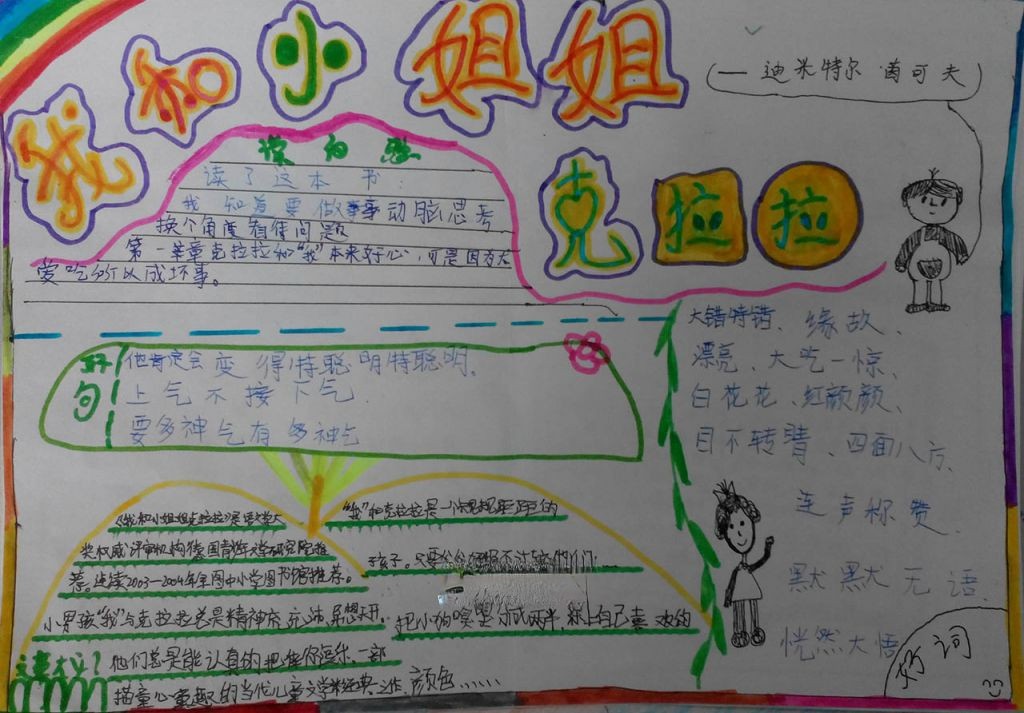 我和小姐姐
克拉拉
— 迪米特尔 茵可夫
读后感
读了这本书:
我知道要做事事动脑思考
换个角度看待问题
第一章克拉拉和“我”本来好心,可是因为太
爱吃所以成坏事。
好句
他肯定会变得特聪明特聪明.
上气不接下气.
要多神气有多神气
大错特错、缘故、
漂亮、大吃一惊、
白花花、红颜颜、
目不转睛、四面八方、
连声称赞、
默默无语、
恍然大悟
好词
文章大意?
《我和小姐姐克拉拉》是
奖权威评审机构德国青少年文学研究院推
荐。连续2003—2004年全国中小学图书馆推荐。
小男孩“我”与克拉拉总是精神充沛,异想天开.
他们总是能认真的把你逗乐.一部
描童心童趣的当代儿童文学经典之作.
“我”和克拉拉是一个规规矩矩的
孩子。只要
把小狗 成两半,涂上自己喜欢的
颜色......